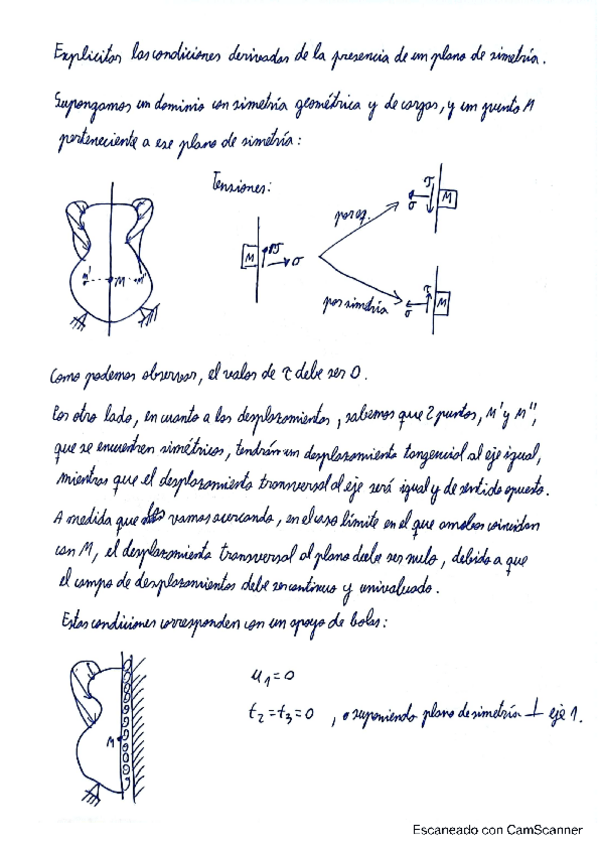 Explicitar las condiciones derivadas de la presencia de un plano de simetría.
Supongamos un dominio con simetría geométrica y de cargas, y un punto M
perteneciente a ese plano de simetría:
Tensiones:
M' M M''
M τ σ
por eq.
τ σ M
por simetría
τ σ M
Como podemos observar, el valor de τ debe ser 0.
Por otro lado, en cuanto a los desplazamientos, sabemos que 2 puntos, M' y M'',
que se encuentren simétricos, tendrán un desplazamiento tangencial al eje igual,
mientras que el desplazamiento transversal al eje será igual y de sentido opuesto.
A medida que los vamos acercando, en el caso límite en el que ambos coincidan
con M, el desplazamiento transversal al plano debe ser nulo, debido a que
el campo de desplazamientos debe ser continuo y univaluado.
Estas condiciones corresponden con un apoyo de bolas:
M
u₁=0
t₂=t₃=0 , suponiendo plano de simetría ⊥ eje 1.
Escaneado con CamScanner